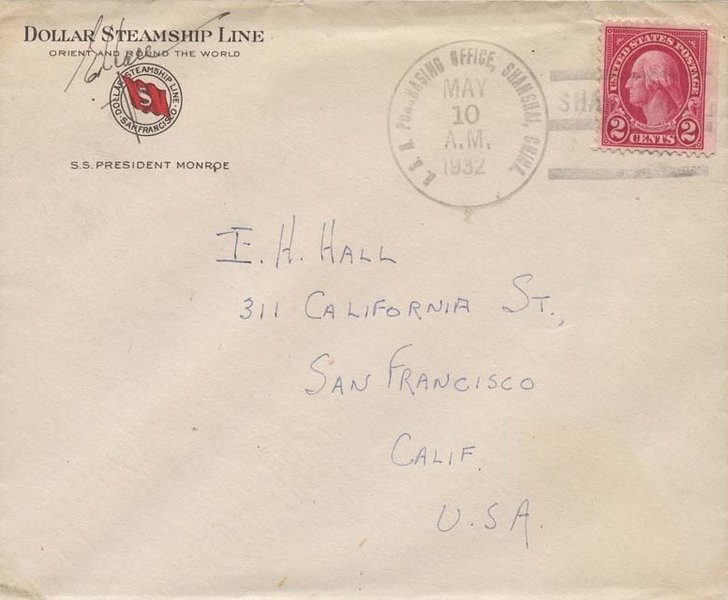 DOLLAR STEAMSHIP LINE
ORIENT AND ROUND THE WORLD
DOLLAR STEAMSHIP LINE
S
SAN FRANCISCO
S.S. PRESIDENT MONROE
U. S. N. PURCHASING OFFICE, SHANGHAI CHINA.
MAY
10
A.M.
1932
UNITED STATES POSTAGE
WASHINGTON
2 CENTS 2
I. H. HALL
311 CALIFORNIA ST.,
SAN FRANCISCO
CALIF.
U.S.A.